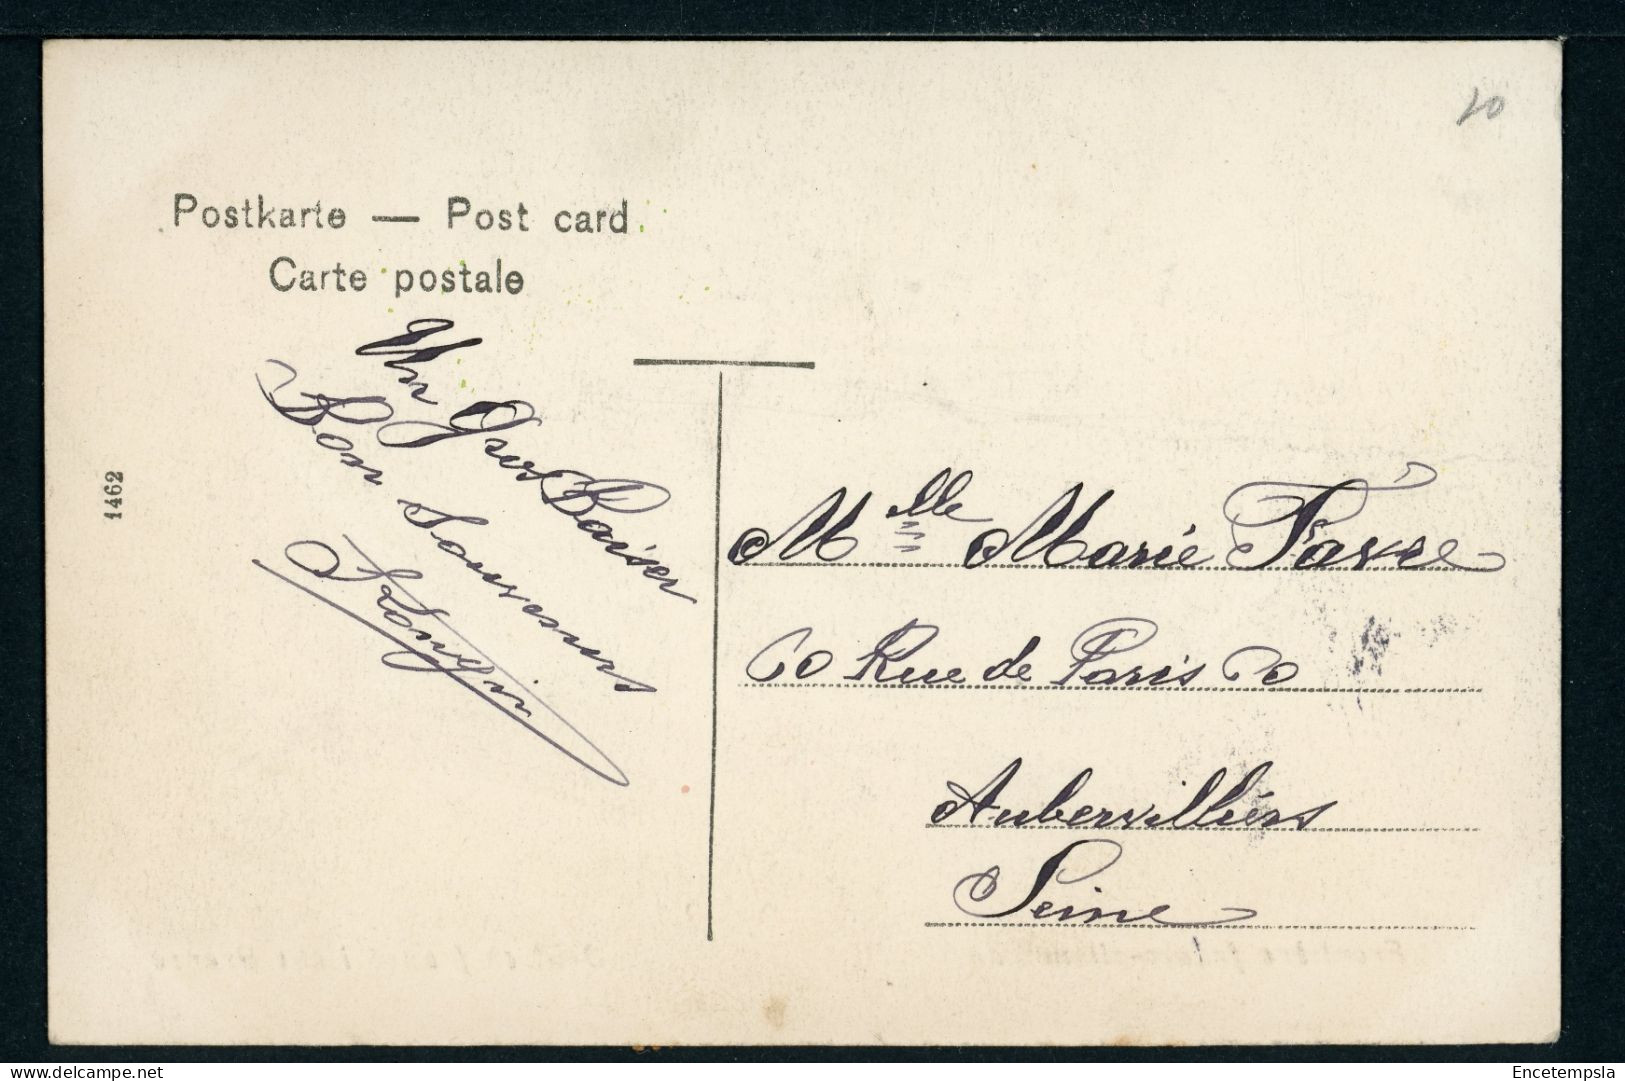 20
Postkarte — Post card
Carte postale
Un Gros Baiser
Bon Souvenirs
1462
Mlle Marie Favre
60 Rue de Paris 60
Aubervilliers
Seine
delcampe.net
Encetempsla